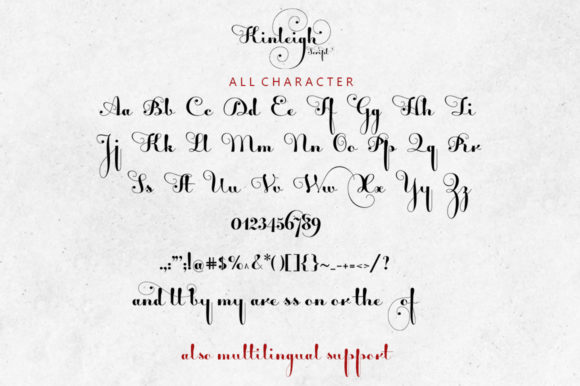 Kinleigh
Script
ALL CHARACTER
Aa Bb Cc Dd Ee Ff Gg Hh Ii
Jj Kk Ll Mm Nn Oo Pp Qq Rr
Ss Tt Uu Vv Ww Xx Yy Zz
0123456789
.,:;"';!@#$%^&*()[]{}~_-+=<>/?
and tt by my are ss on or the of
also multilingual support